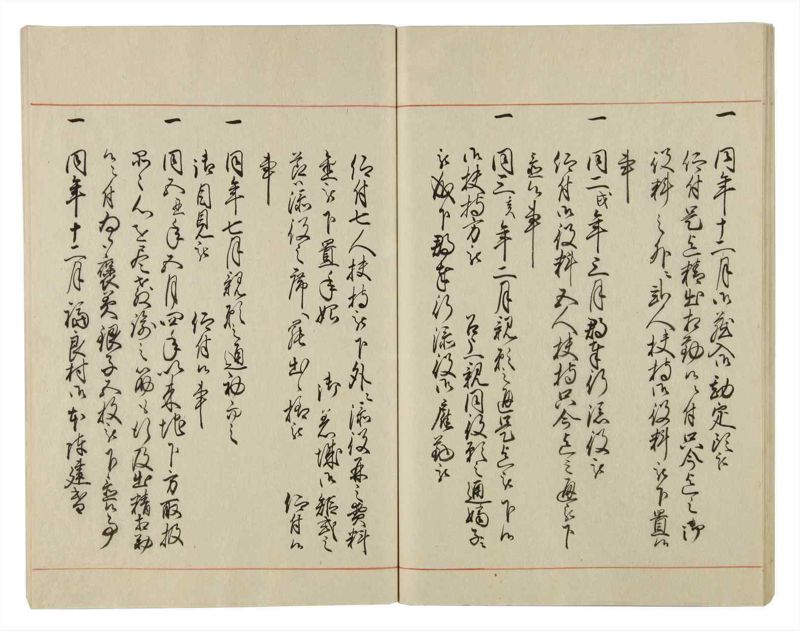 一 同年十二月御蔵入御勘定頭被
仰付是迄精出相勤候ニ付只今迄之御
役料之外ニ弐人扶持御役料被下置候
事
一 同二戌年三月郡奉行添役被
仰付御役料五人扶持只今迄之通被下
置候事
一 同三亥年二月親願之通是迄被下候
御扶持方被 召上親同役願之通嫡子
被成下郡奉行添役御雇勤被
仰付七人扶持被下外ニ添役并之貴料
金被下置年始 御着城御規式之
節添役之席へ罷出候様被 仰付候
事
一 同年七月親願之通初而之
御目見被 仰付候事
一 同五丑年五月四年以来地下方取扱
心を尽教諭之筋も行及出精相勤
候ニ付為御褒美銀子五枚被下置候事
一 同年十二月福良村御本陣建替